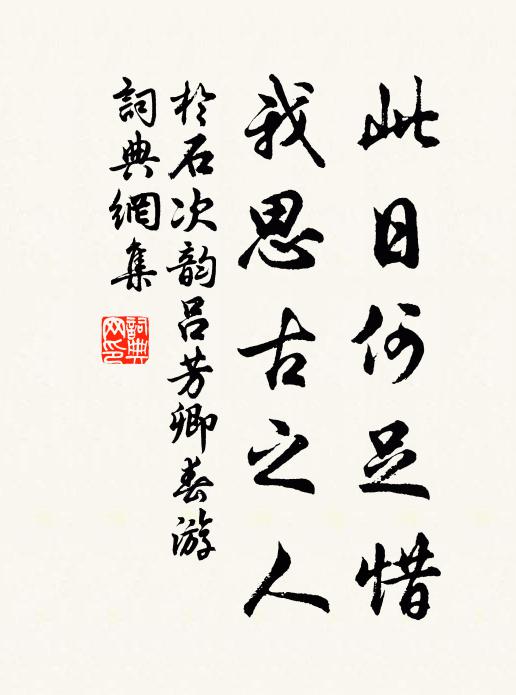 此日何足惜
我思古之人
於石次韵吕芳卿春游
詞典網集
詞典網印